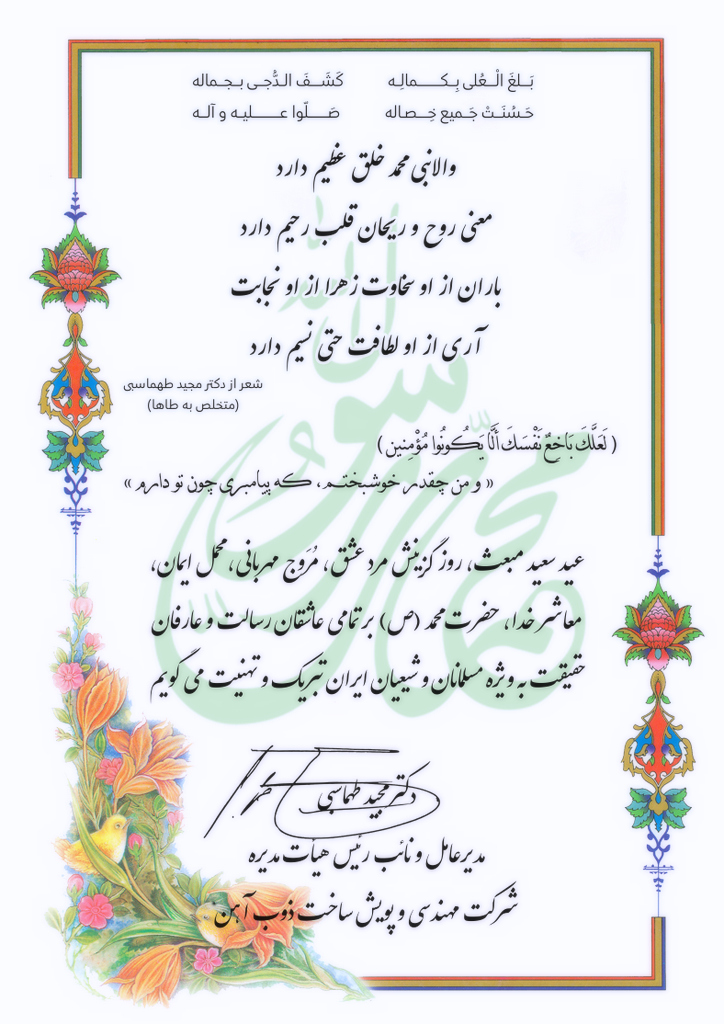 بَـلَغَ الْـعُلی بِـکـــمالِـه کَشَــفَ الـدُّجـی بـجماله
حَسُنَتْ جَمیع خِـصاله صَــلّوا عـــلیـه و آلـه
والانبی محمد خلق عظیم دارد
معنی روح و ریحان قلب رحیم دارد
باران از او سخاوت زهرا از او نجابت
آری از او لطافت حتی نسیم دارد
شعر از دکتر مجید طهماسبی
(متخلص به طاها)
( لَعَلَّکَ بَاخِعٌ نَفْسَکَ أَلَّا یَکُونُوا مُؤْمِنِین )
« و من چقدر خوشبختم، که پیامبری چون تو دارم »
عید سعید مبعث، روز گزینش مرد عشق، مُرَوج مهربانی، محمل ایمان،
معاشر خدا، حضرت محمد (ص) بر تمامی عاشقان رسالت و عارفان
حقیقت به ویژه مسلمانان و شیعیان ایران تبریک و تهنیت می گویم
دکتر مجید طهماسبی
مدیرعامل و نائب رئیس هیأت مدیره
شرکت مهندسی و پویش ساخت ذوب آهن
محمد رسول الله